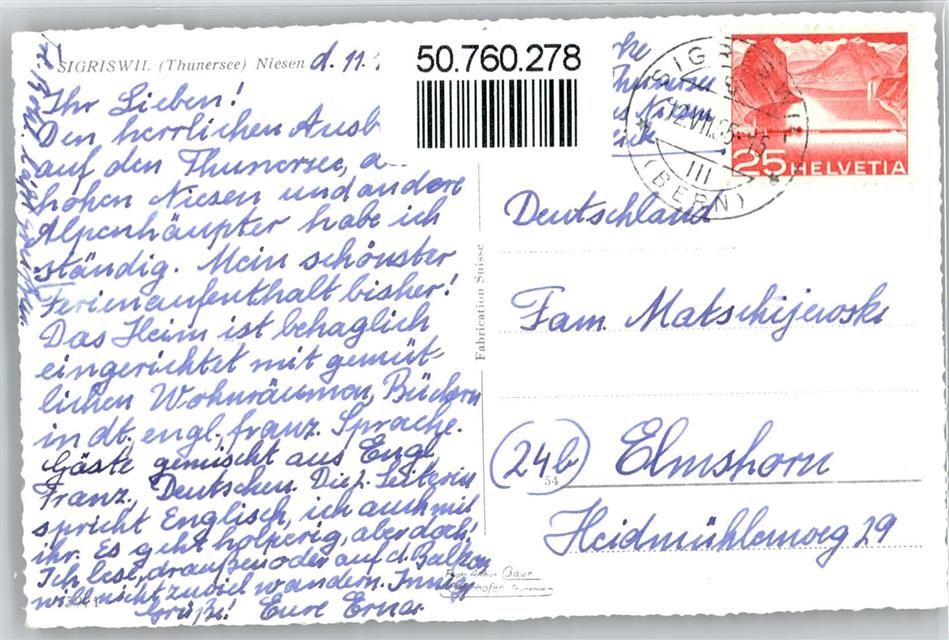 SIGRISWIL (Thunersee) Niesen d. 11.
50.760.278
Ihr Lieben!
Den herrlichen Ausb
auf den Thunersee, d
hohen Niesen und andere
Alpenhäupter habe ich
ständig. Mein schönster
Ferienaufenthalt bisher!
Das Heim ist behaglich
eingerichtet mit gemüt-
lichen Wohnräumen, Büchern
in dt. engl., franz. Sprache.
Gäste gemischt aus Engl.,
Franz., Deutschen. Die Leiterin
spricht Englisch, ich auch mit
ihr. Es geht holperig, aber doch!
Ich lese draußen oder auf d. Balkon,
will nicht zuviel wandern. Innige
Grüße! Eure Erna
Fabrication Suisse
Thunersee
SIGRISWIL
12.VII.
III
(BERN)
25 HELVETIA
Deutschland
Fam. Matschijewski
(24b) Elmshorn
54
Heidmühlenweg 29
Foto Arthur Baur